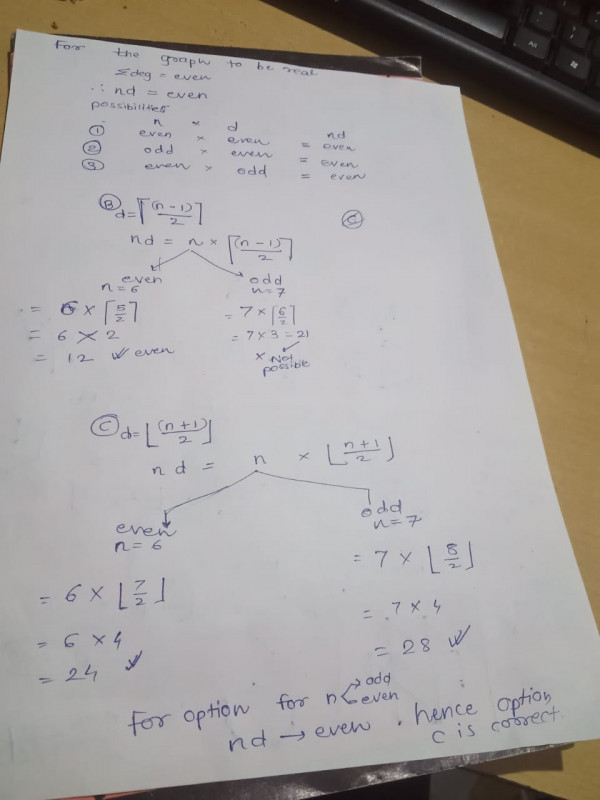 For the graph to be real
Σdeg = even
∴ nd = even
possibilities
n × d nd
① even × even = even
② odd × even = even
③ even × odd = even
Ⓑ d = ⌈(n-1)/2⌉
Ⓒ
nd = n × ⌈(n-1)/2⌉
even odd
n=6 n=7
= 6 × ⌈5/2⌉ = 7 × ⌈6/2⌉
= 6 × 2 = 7×3 = 21
= 12 ✓ even × Not possible
Ⓒ d = ⌊(n+1)/2⌋
nd = n × ⌊n+1/2⌋
even odd
n = 6 n = 7
= 6 × ⌊7/2⌋ = 7 × ⌊8/2⌋
= 6 × 4 = 7 × 4
= 24 ✓ = 28 ✓
For option for n odd even
nd → even . hence option
C is correct
Alt